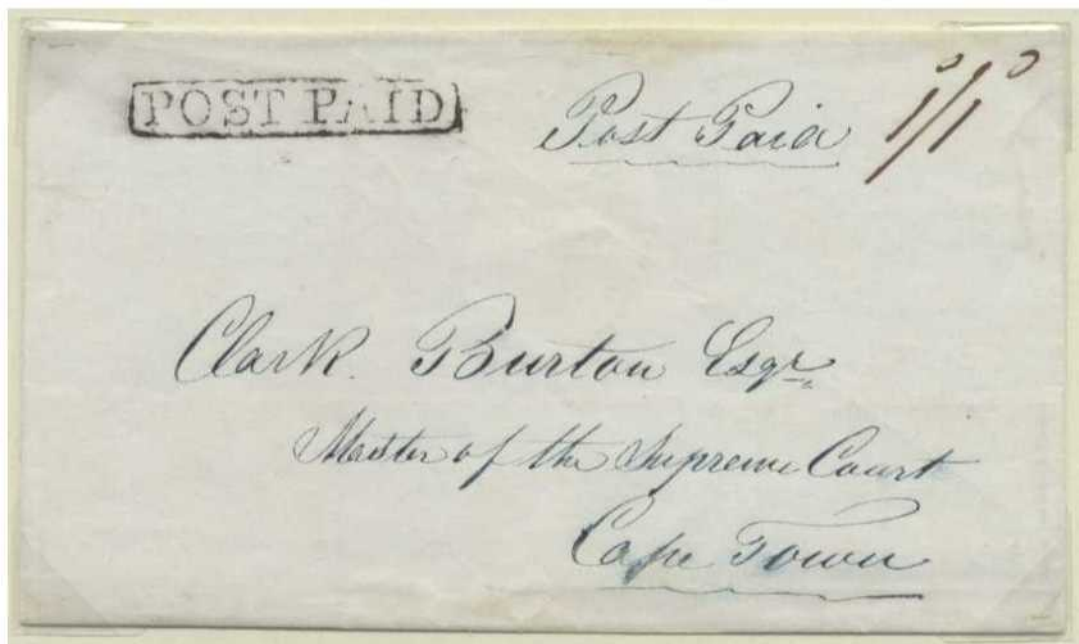 POST PAID
Post Paid
Clark Burton Esqr.
Master of the Supreme Court
Cape Town